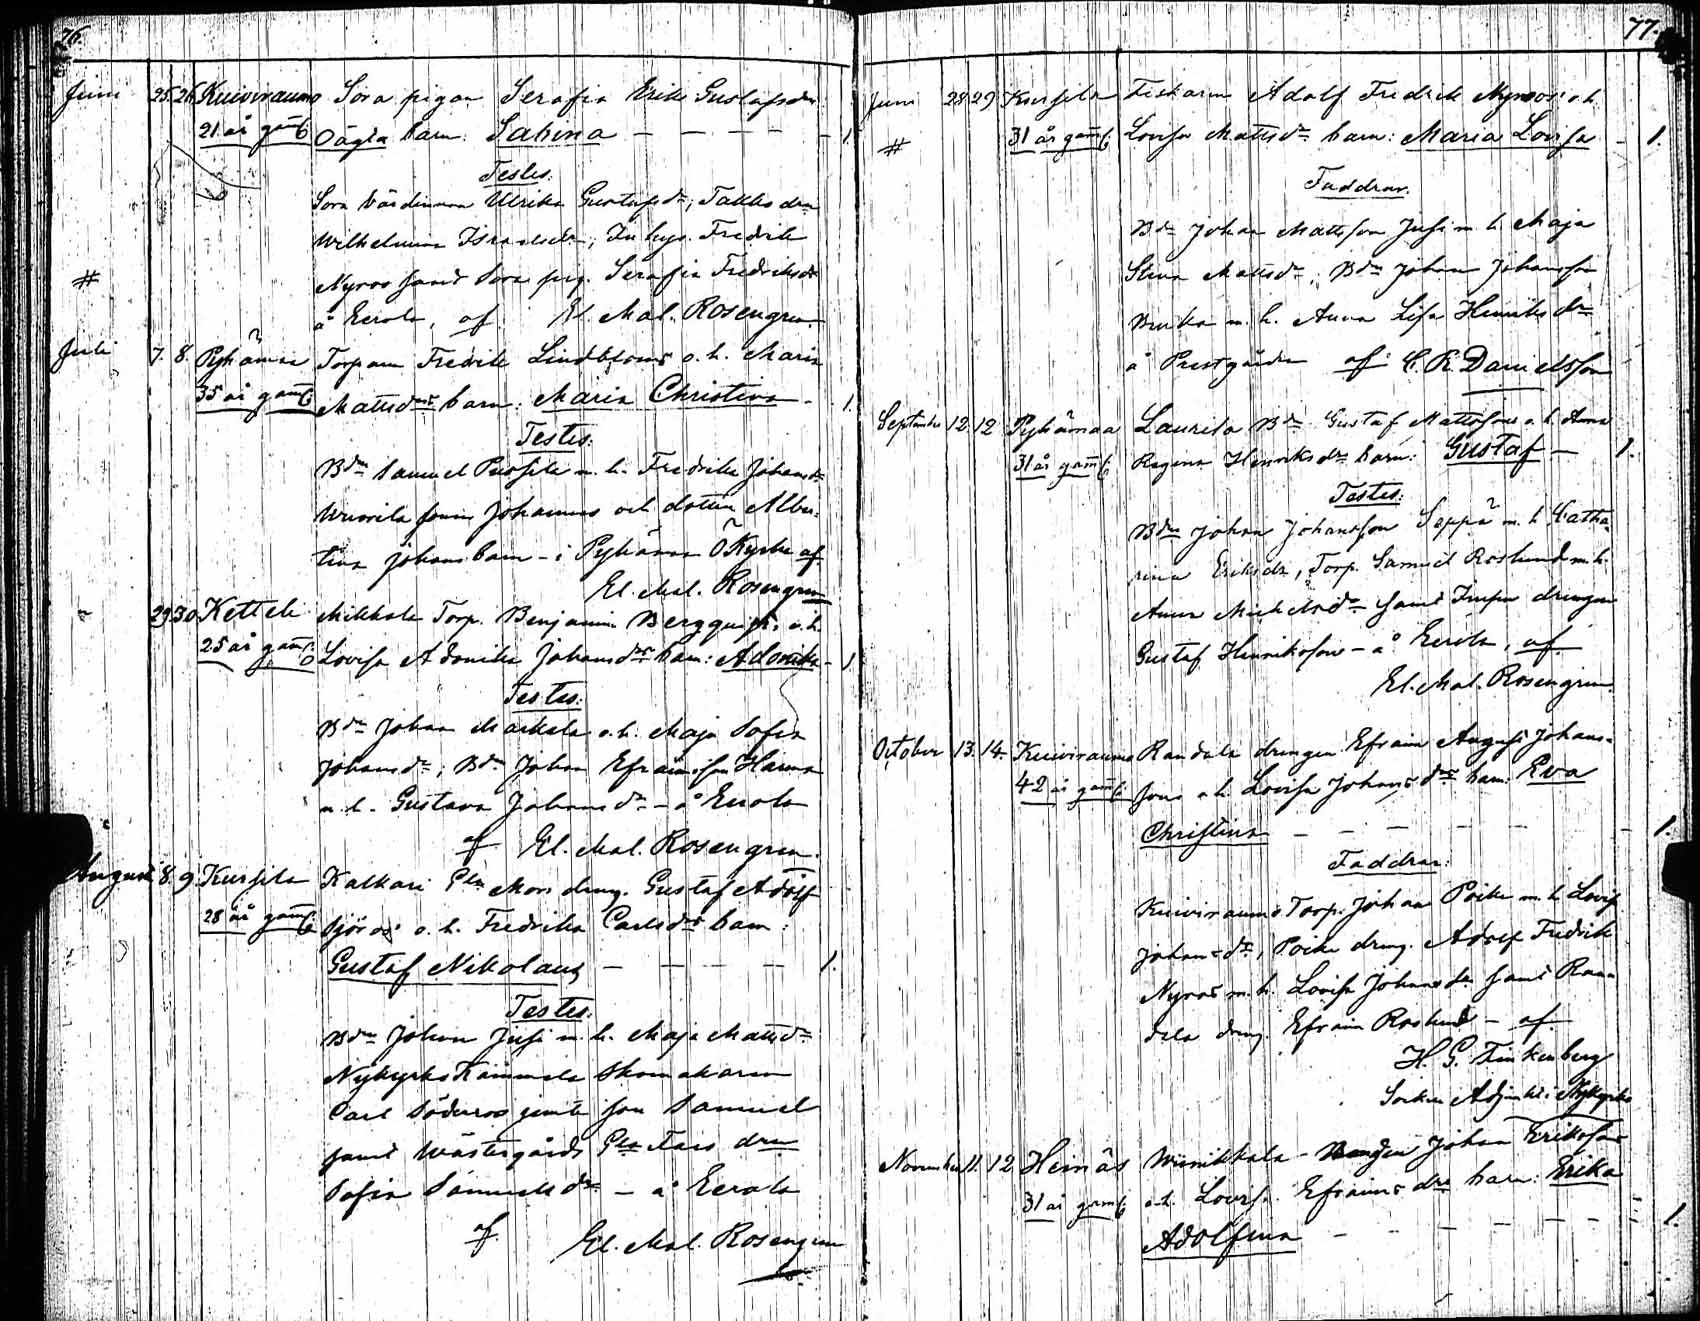 76.
Juni 25. 26. Kuivirauma Sora pigan Serafia Eriks Gustafsdr
21 år gam̄l Oägta barn: Sabina – – – – – 1.
Testes.
Sora Värdinnan Ulrika Gustafsdr,
Wilhelmina Israelsdr, Inhys. Fredrik
# Nyroos samt Sora pig. Serafia Fredriksdr
å Eerola, af El. Mal. Rosengren.
Juli 7. 8. Pyhämaa Torparen Fredrik Lindbloms o. h. Maria
35 år gam̄l Mattsdrs barn: Maria Christina – 1.
Testes:
Bdn Samuel m. h. Fredrika Johansdr
Johannes och dottern Alber-
tina Johans barn – i Pyhämaa Ö Kyrka af.
El. Mal. Rosengren
29 30 Ketteli Mikkola Torp. Benjamin Bergqvists o. h.
25 år gam̄l Lovisa Adamika Johansdrs barn: Adamika – 1
Testes:
Bdn Johan Markula o. h. Maja Sofia
Johansdr; Bdn Johan Efraimsson Hanno
m. h. Gustava Johansdr – å Eerola
af El. Mal. Rosengren.
August 8. 9 Kursila Kalkari Gln drng. Gustaf Adolf
28 år gam̄l Sjöroos o. h. Fredrika Carlsdrs barn:
Gustaf Nikolaus – – – – 1.
Testes:
Bdn Johan Jusi m. h. Maja Mattsdr
Nykyrko Kammela Skomakaren
Carl Söderroos jemte son Samuel
samt Wästergårds
Sofia Samuelsdr – å Eerola
af El. Mal. Rosengren
77.
Juni 28 29 Kursila Fiskaren Adolf Fredrik Nyroos' o. h.
# 31 år gam̄l Lovisa Mattsdrs barn: Maria Lovisa – 1.
Faddrar.
Bdn Johan Mattsson Jusi m. h. Maja
Stina Mattsdr, Bdn Johan Johansson
m. h. Anna Lisa Henriksdr
å Prestgården af: C. R. Danielsson
September 12 12 Pyhämaa Laurila Bdn Gustaf Mattssons o. h. Anna
31 år gam̄l Regina Henriksdrs barn: Gustaf – 1.
Testes:
Bdn Johan Johansson Seppä m. h. Catha-
rina Eriksdr, Torp. Samuel Roslund m. h.
Anna Michelsdr samt drengen
Gustaf Henriksson – å Eerola, af
El. Mal. Rosengren.
October 13. 14. Kuivirauma Randala drengen Efraim August Johans-
42 år gam̄l sons o. h. Lovisa Johansdrs barn: Eva
Christina – – – – – – 1.
Faddrar:
Kuivirauma Torp. Johan Poike m. h. Lovisa
Johansdr, Poike dreng. Adolf Fredrik
Nyroos m. h. Lovisa Johansdr samt Ran-
dala dreng Efraim Roslund – af
H. G. Finkenberg
Socken Adjunkt i Nykyrko
November 11. 12 Heinäs Wiinikkala – Johan Erikssons
31 år gam̄l o. h. Lovisa Efraimsdrs barn: Erika
Adolfina – – – – – – 1.